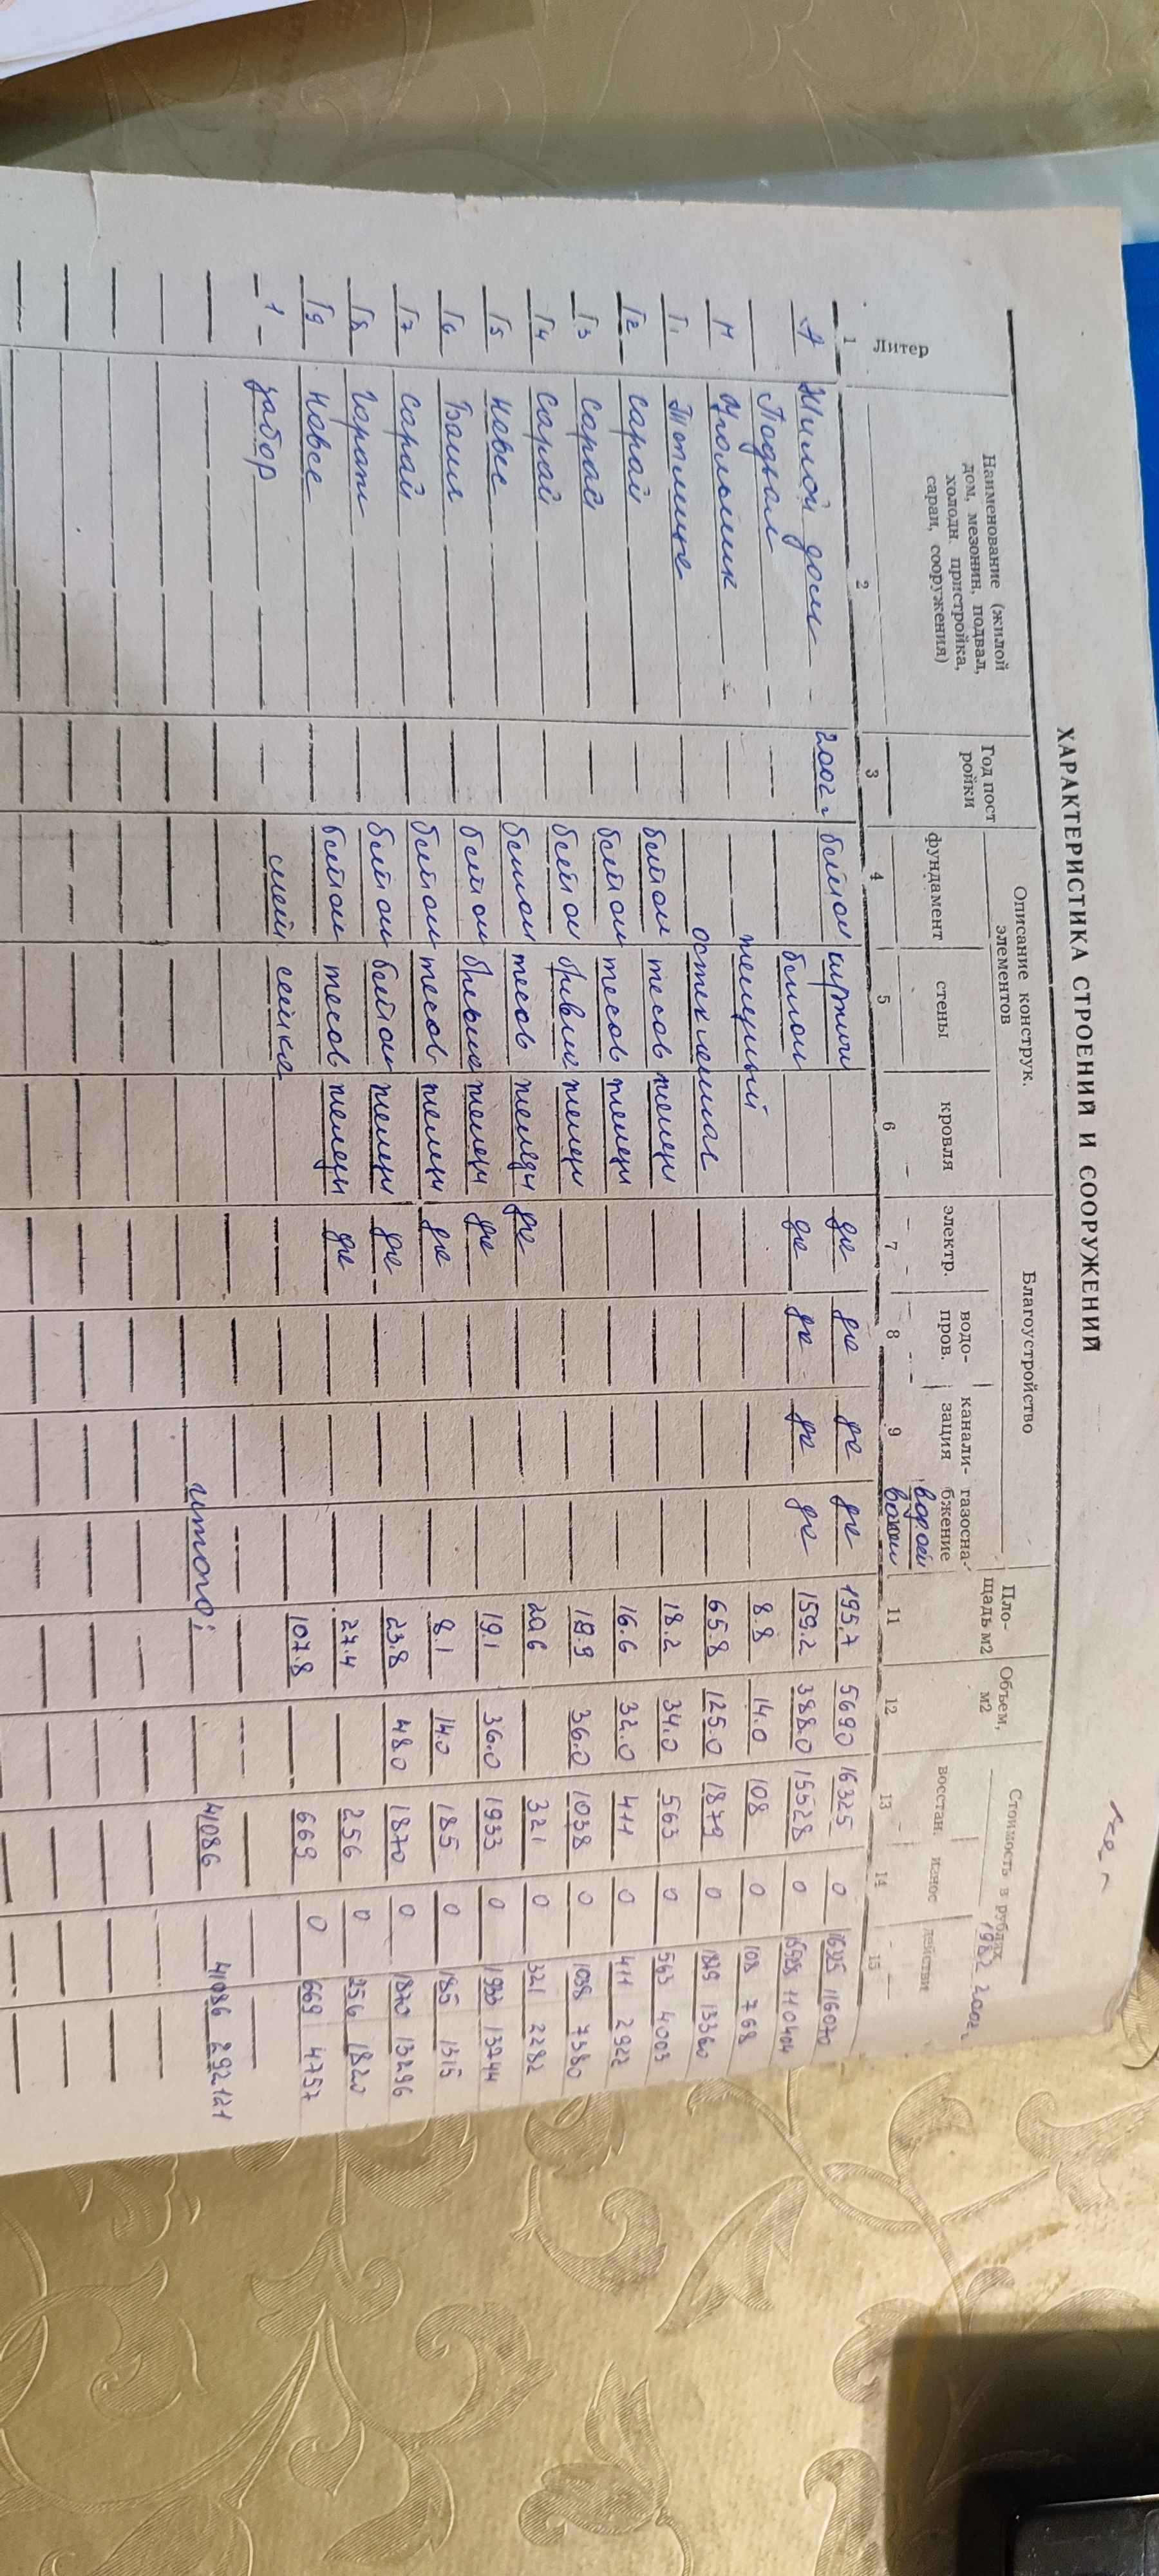 ХАРАКТЕРИСТИКА СТРОЕНИЙ И СООРУЖЕНИЙ
Литер Наименование (жилой дом, мезонин, подвал, холодн. пристройка, сараи, сооружения) Год пост ройки Описание конструк. элементов Благоустройство Пло- щадь м2 Объем, м2 Стоимость в рублях 1982 2002г
фундамент стены кровля электр. водо- пров. канали- зация газосна- бжение восстан. износ действ
1 2 3 4 5 6 7 8 9 11 12 13 14 15
А Жилой дом 2002г бетон кирпич да да да да 195,7 5690 16325 0 16325 116070
Подвал бетон да да да да 159.2 388.0 15528 0 15528 110404
М Угольник железный 8.8 14.0 108 0 108 768
Теплица остекленная 65.8 125.0 1879 0 1879 13360
Г1 бетон тесов железн 18.2 34.0 563 0 563 4003
Г2 сарай бетон тесов железн 16.6 32.0 411 0 411 2922
Г3 сарай бетон железн 19.9 36.0 1038 0 1038 7380
Г4 сарай бетон тесов железн да 20.6 321 0 321 2282
Г5 навес бетон железн да 19.1 36.0 1933 0 1933 13744
Г6 Баня бетон тесов железн да 8.1 14.0 185 0 185 1315
Г7 сарай бетон бетон железн да 23.8 48.0 1870 0 1870 13296
Г8 Гараж бетон тесов железн да 27.4 256 0 256 1820
Г9 навес сетка 107.8 669 0 669 4757
1 забор
итого: 41086 41086 292121